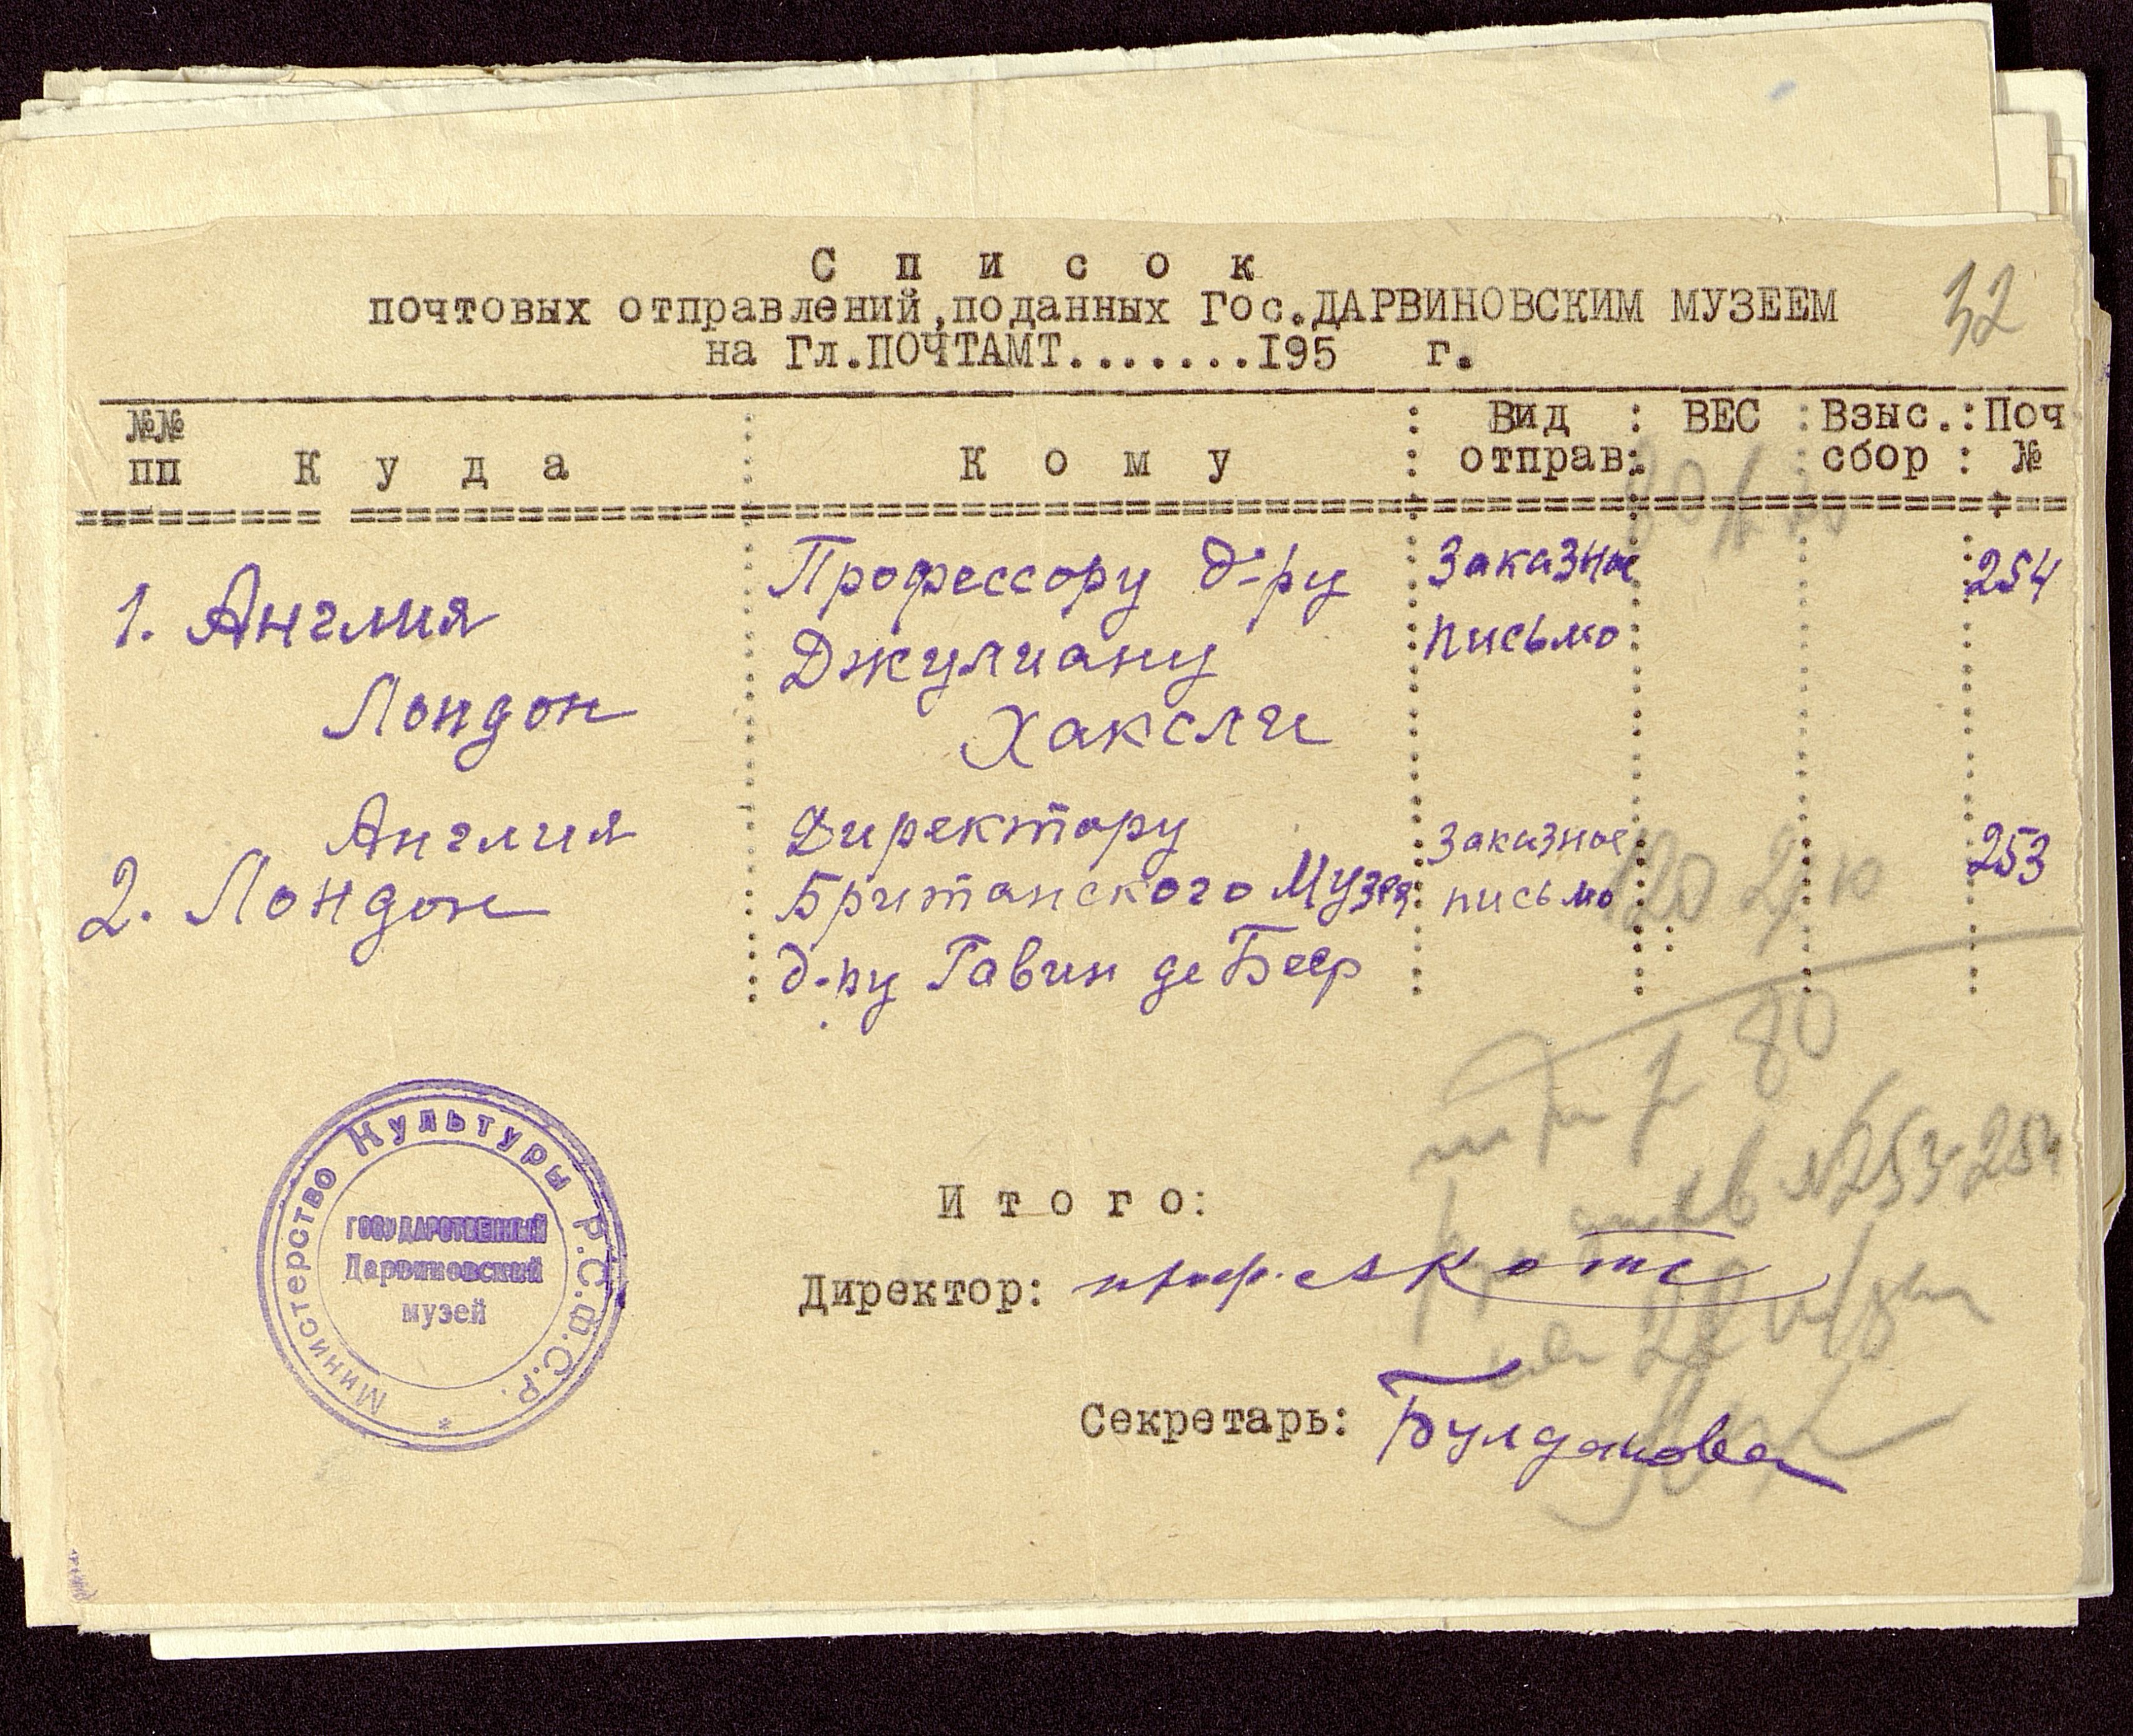 Список
почтовых отправлений, поданных Гос. ДАРВИНОВСКИМ МУЗЕЕМ
на Гл.ПОЧТАМТ.......195 г.
32
№№ пп Куда : Кому : Вид отправ: : ВЕС : Взыс. сбор : Поч №
1. Англия
Лондон
Профессору д-ру
Джулиану
Хаксли
Заказное
письмо
254
Англия
2. Лондон
Директору
Британского Музея
д-ру Гавин де Беер
Заказное
письмо
253
120
80
№253-254
Итого:
Директор: проф. А Котс
Секретарь: Булданова
Министерство Культуры Р.С.Ф.С.Р.
*
ГОСУДАРСТВЕННЫЙ
Дарвиновский
музей